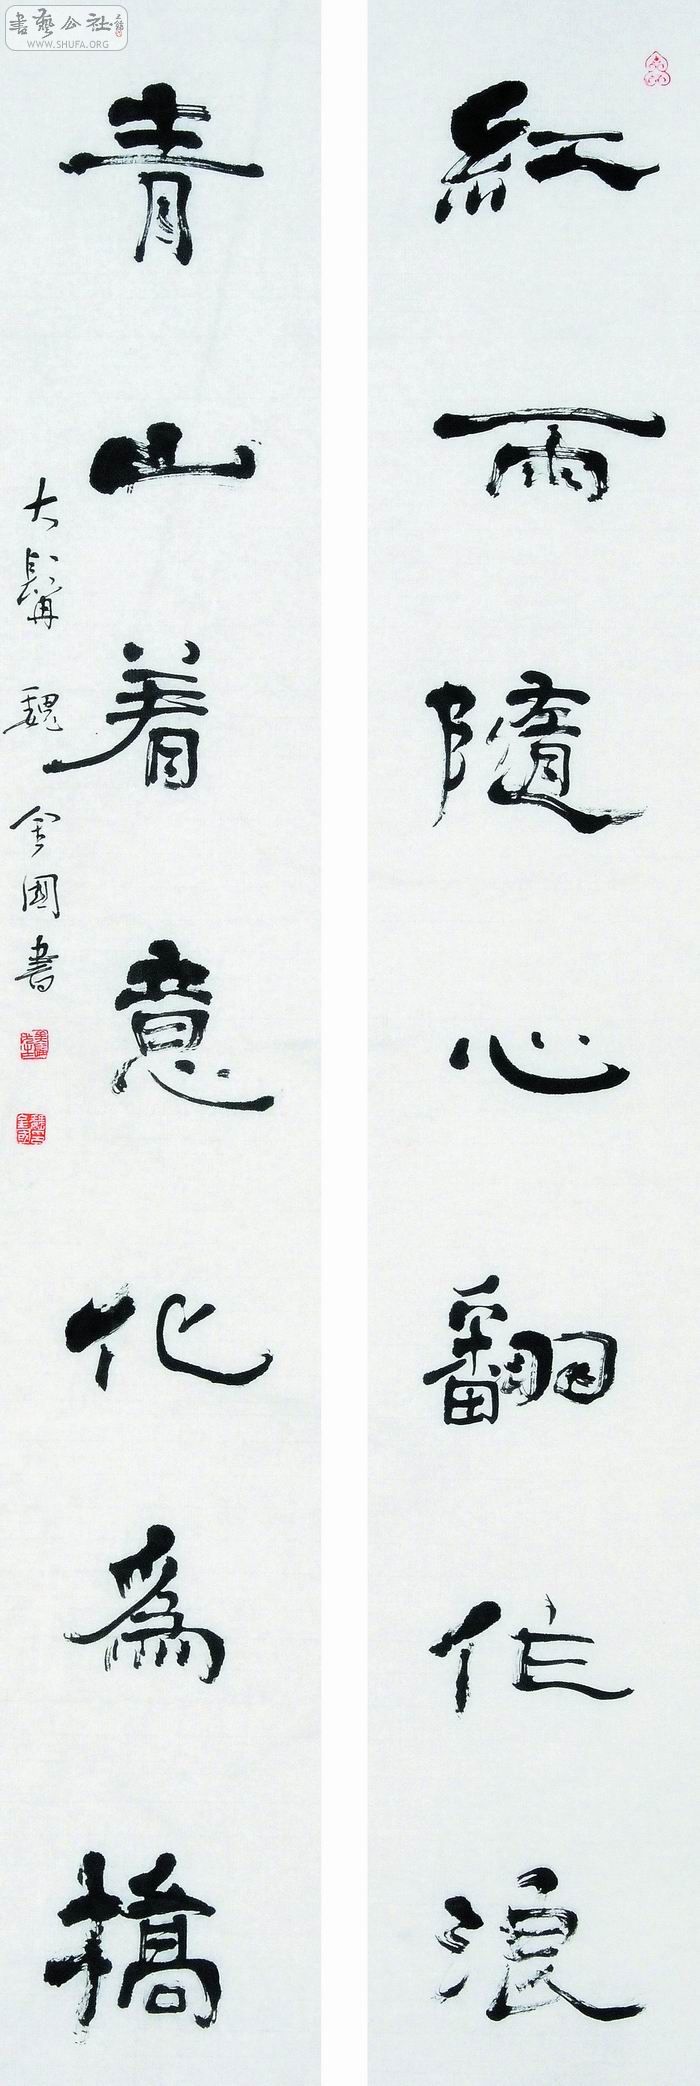 紅雨隨心翻作浪
青山着意化為橋
大髯 魏金國書
書藝公社
WWW.SHUFA.ORG